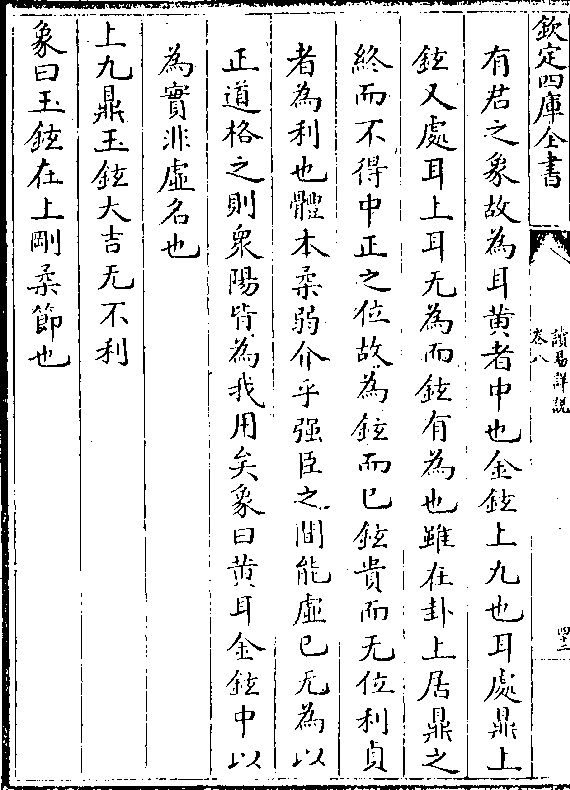 欽定四庫全書
讀易詳說
卷八
四十三
有君之象故為耳黄者中也金鉉上九也耳處鼎上
鉉又處耳上耳无為而鉉有為也雖在卦上居鼎之
終而不得中正之位故為鉉而已鉉貴而无位利貞
者為利也體本柔弱介乎强臣之間能虚已无為以
正道格之則衆陽皆為我用矣象曰黄耳金鉉中以
為實非虚名也
上九鼎玉鉉大吉无不利
象曰玉鉉在上剛柔節也